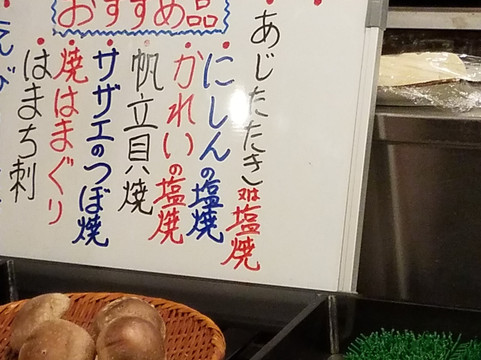 おすすめ品
・あじたたき又は塩焼
・にしんの塩焼
・かれいの塩焼
・帆立貝焼
・サザエのつぼ焼
・焼はまぐり
・はまち刺